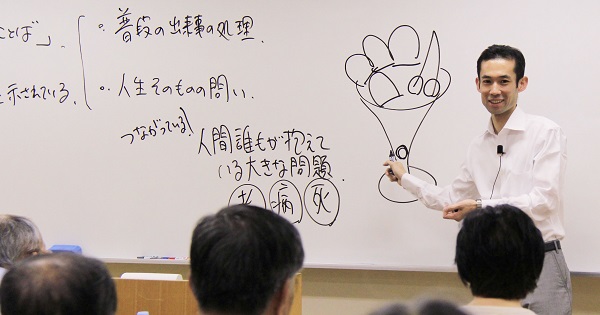 ことば」、
を示されている、
○普段の出来事の処理.
○人生そのものの問い.
つながっている!
人間誰もが抱えて
いる大きな問題.
老 病 死